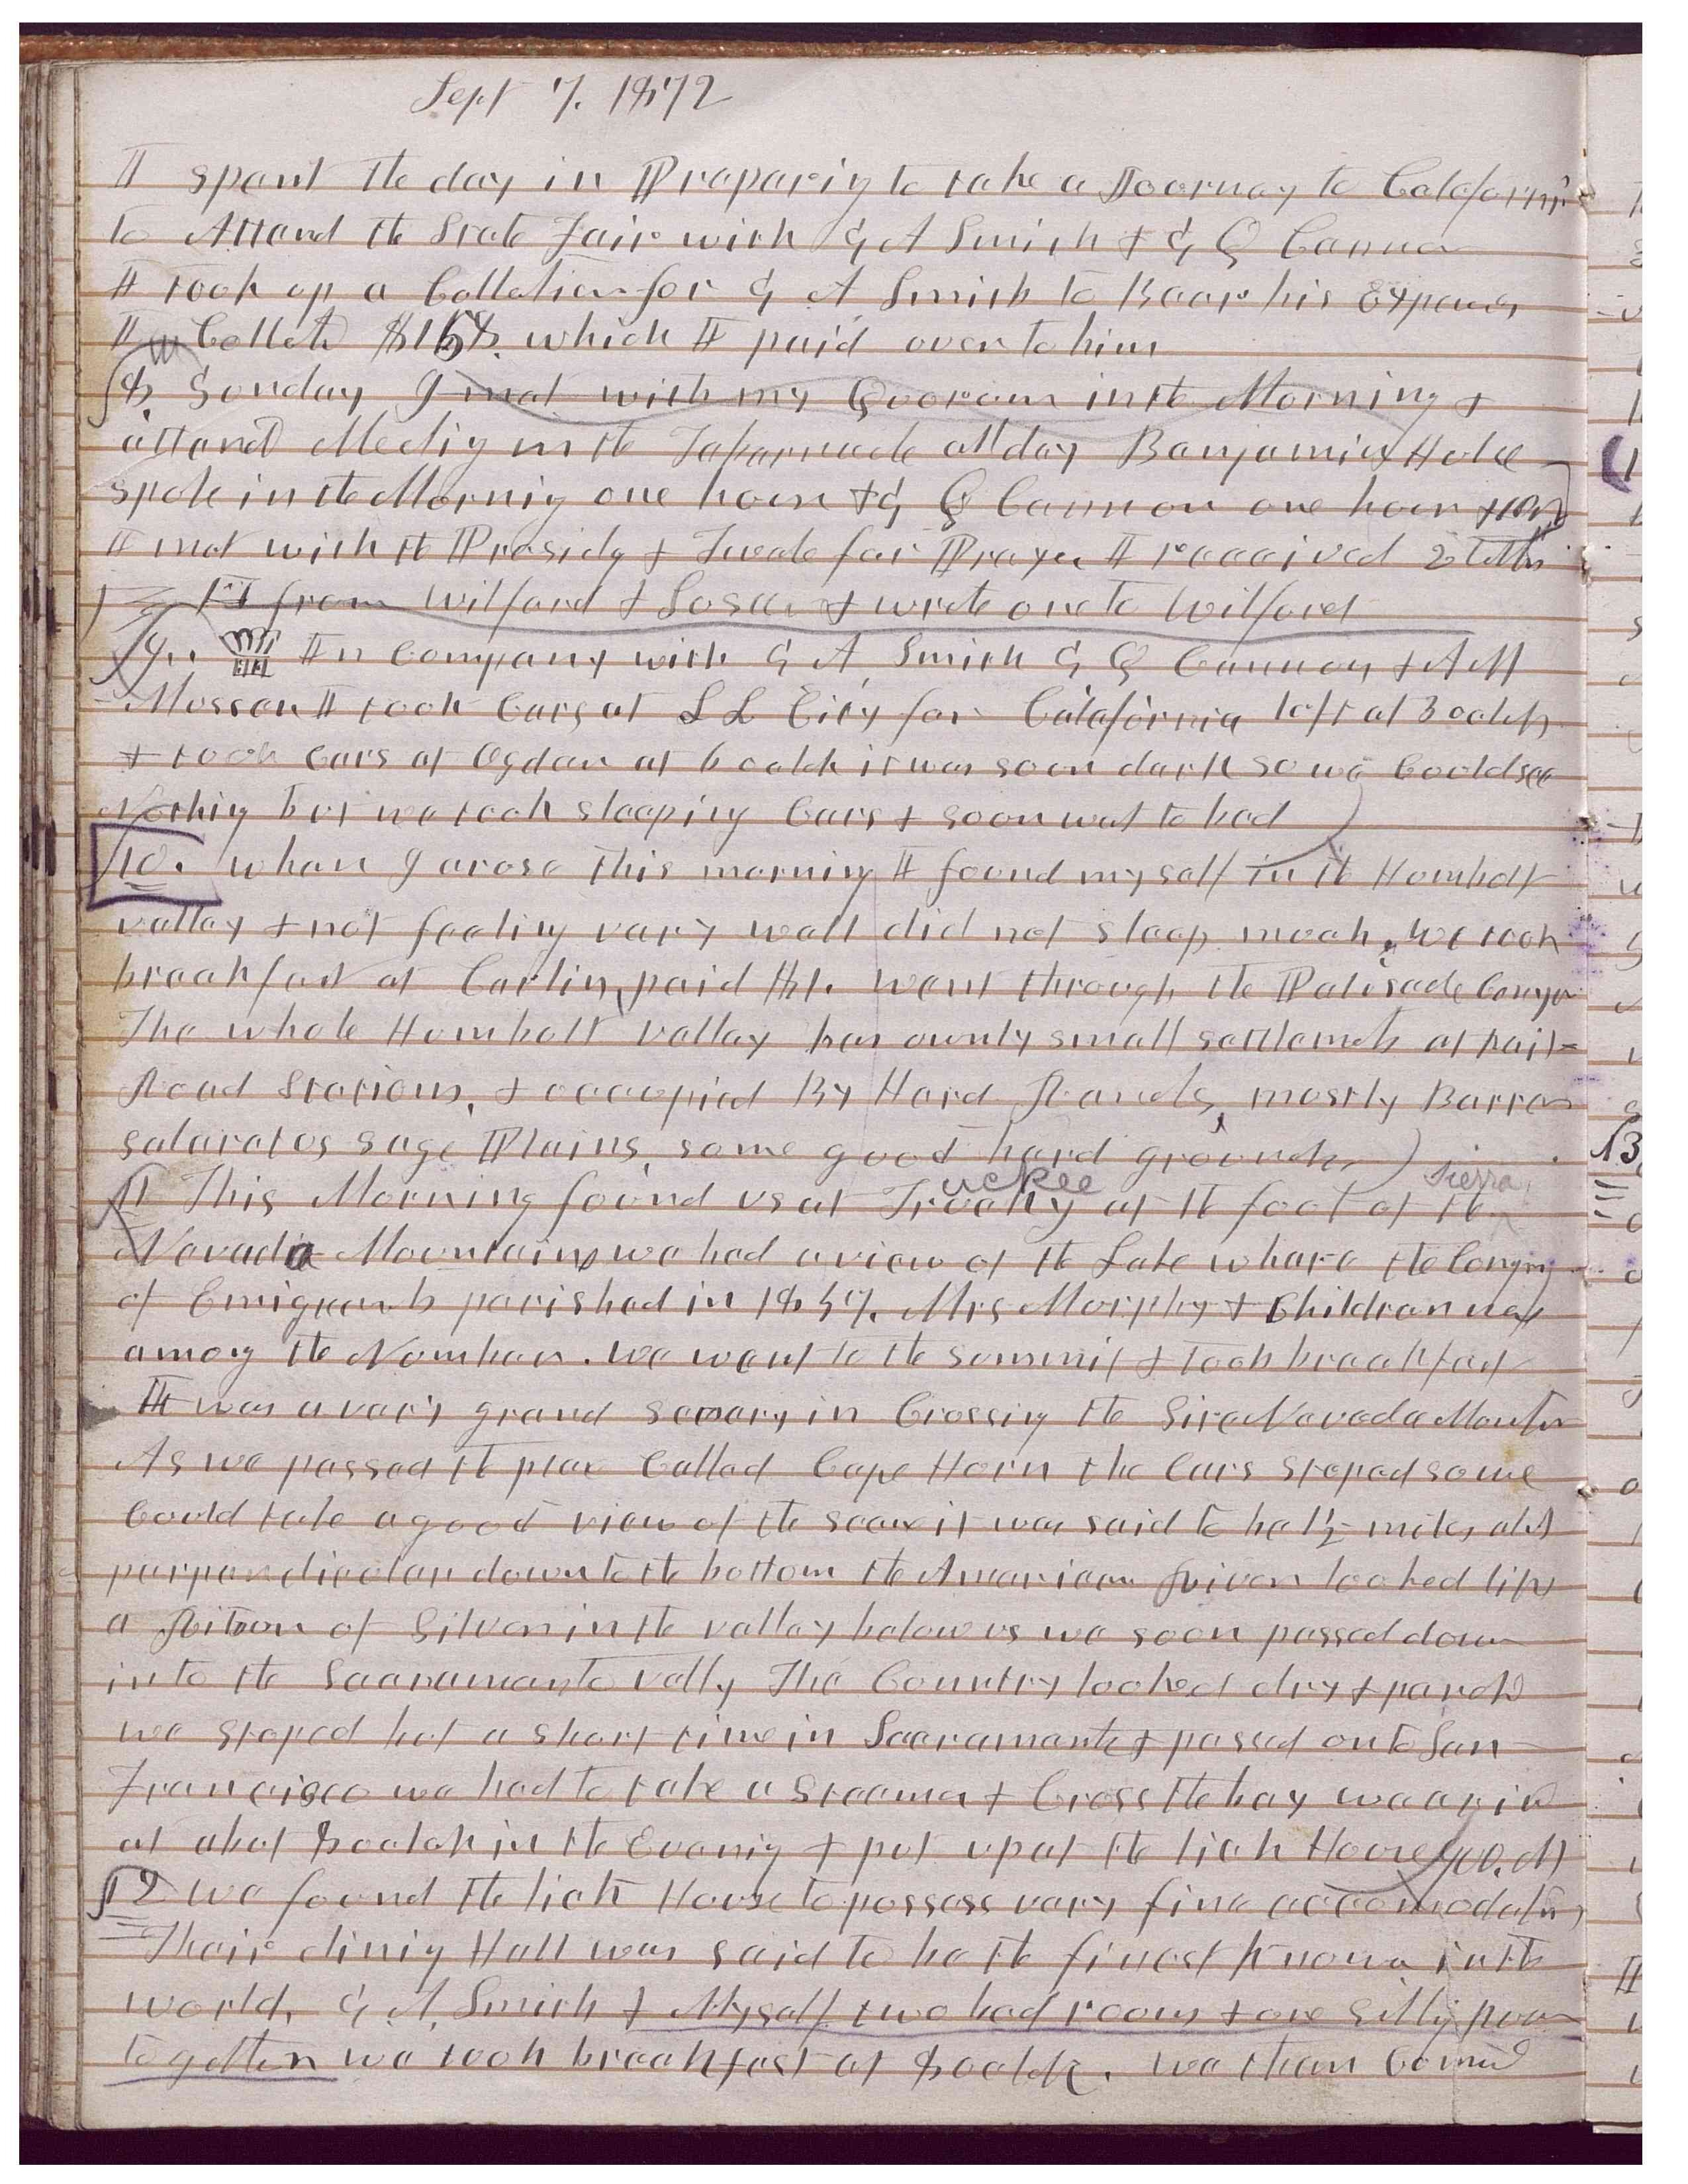 Sept 7. 1872
I spent the day in Preparing to take a Journey to Californi
to Attend the State Fair with G A Smith & G Q Cannon
I took up a Collection for G A Smith to Bear his Expenses
I Collectd $168. which I paid over to him
8 Sunday I met with my Quorum in the Morning &
attend Meeting in the Tabernacle all day Benjamin
spoke in the Morning one hour & G Q Cannon one hour
I met with the Presidy & Twelve for Prayer I received 2 letters
from Wilford & Susan & wrote one to Wilford
9. In Company with G A Smith G Q Cannon & A M
Musser I took Cars at S L City for California left at 3 oclok
& took Cars at Ogden at 6 oclok it was soon dark so we Could see
Nothing but we took sleeping Cars & soon went to bed
10. when I arose this morning I found myself in the Humbolt
valley & not feeling very well did not sleep much. We took
breakfast at Carlin, paid $1. went through the Palisade Canyon
The whole Humbolt valley has ownly small settlements at rail=
Road Stations, & occupied By Herd Rands, mostly Barren
salaratos sage Plains, some good herd grounds
11 This Morning found us at Truckey uckee at the foot of the Sierra
Nevada Mountains we had a view of the Lake where the Company
of Emigrants perished in 1847. Mrs Murphy & Children was
among the Number. we went to the summit & took breakfast
It was a very grand scenery in Crossing the Sira Nevada Mountn
As we passed the place Called Cape Horn the Cars stoped so we
Could take a good view of the scene it was said to be 1½ miles almost
perpendicular down to the bottom the American River looked like
a Ribon of Silver in the valley below us we soon passed down
into the Sacramento vally The Country looked dry & parchd
we stoped but a short time in Sacramento & passed on to San
Francisco we had to take a Steamer & Cross the bay we arivd
at about 8 oclok in the Evening & put up at the lick House 900. M
12 we found the lick House to possess very fine accomodations
Their dining Hall was said to be the finest known in the
world, G A Smith & Myself two bed rooms & one Setting room
together we took breakfast at 8 oclok. we then